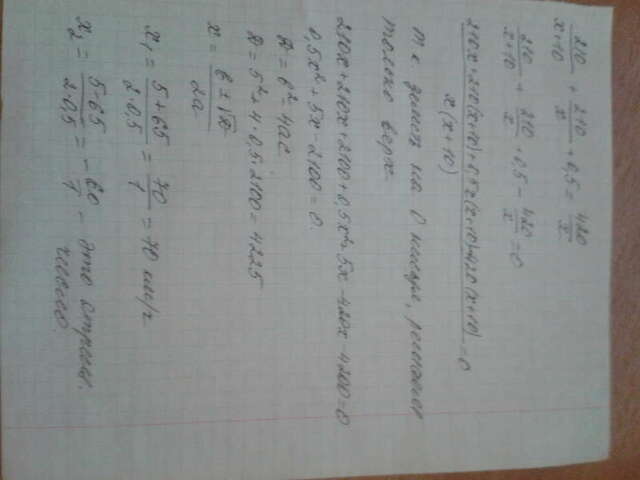 210/(x+10) + 210/x + 0,5 = 420/x
210/(x+10) + 210/x + 0,5 - 420/x = 0
(210x+210(x+10)+0,5x(x+10)-420(x+10))/(x(x+10)) = 0
т к делить на 0 нельзя, решаем
только верх.
210x+210x+2100+0,5x²+5x-420x-4200=0
0,5x²+5x-2100=0
D = b²-4ac
D = 5²+4·0,5·2100=4225
x = (b±√D)/2a
x₁ = (5+65)/(2·0,5) = 70/1 = 70 км/г
x₂ = (5-65)/(2·0,5) = -60/1 - это отриц.
число